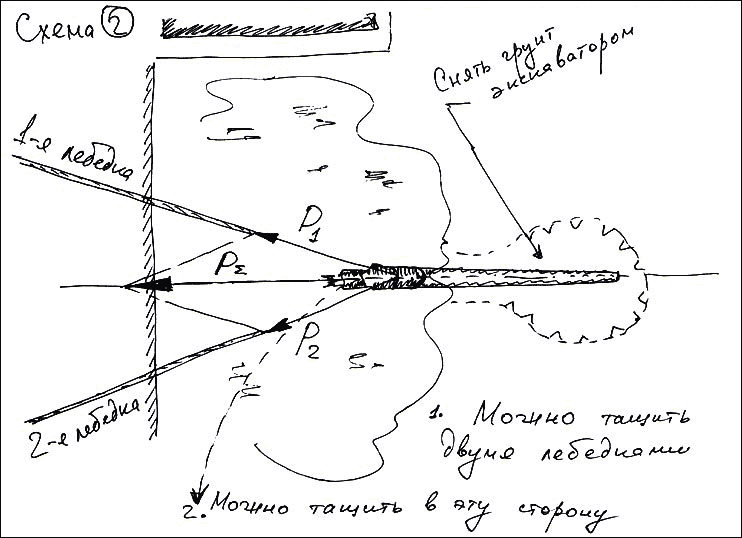 Схема 2
Снять грунт
экскаватором
1-я лебёдка
P1
PΣ
P2
2-я лебедка
1. Можно тащить
двумя лебедками
2. Можно тащить в эту сторону